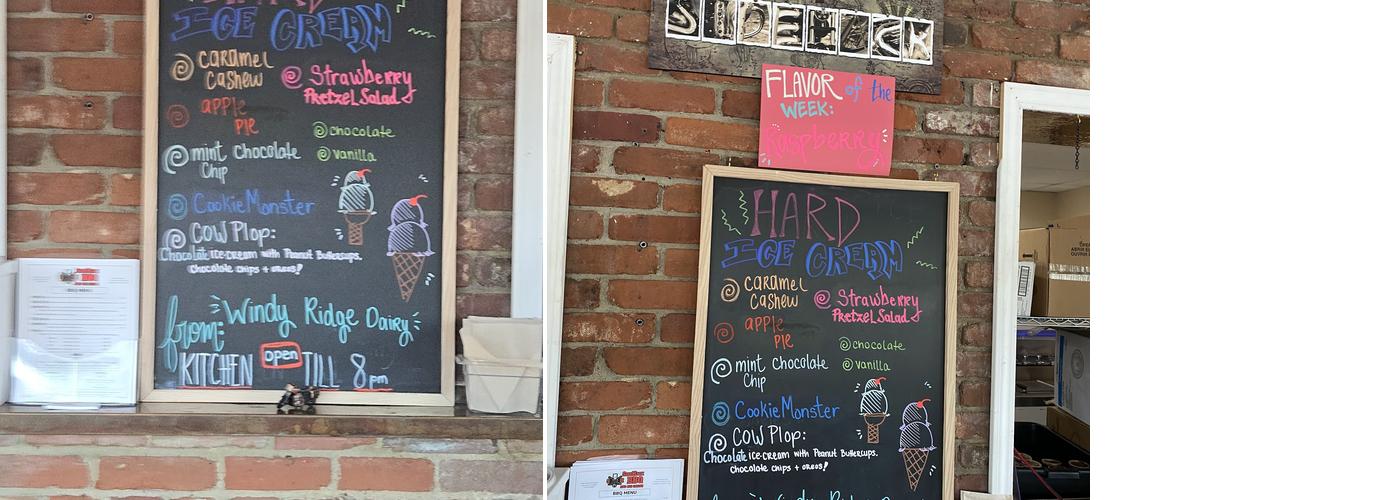 HARD
ICE CREAM
CARAMEL
CASHEW
Strawberry
Pretzel Salad
apple
PIE
chocolate
vanilla
mint Chocolate
Chip
Cookie Monster
COW Plop:
Chocolate ice-cream with Peanut Buttercups.
Chocolate chips + oreos!
from: Windy Ridge Dairy
KITCHEN Open TILL 8pm
BBQ MENU
FLAVOR of the
WEEK:
Raspberry
HARD
ICE CREAM
CARAMEL
CASHEW
Strawberry
Pretzel Salad
apple
PIE
chocolate
vanilla
mint Chocolate
Chip
Cookie Monster
COW Plop:
Chocolate ice-cream with Peanut Buttercups.
Chocolate chips + oreos!
Windy Ridge Dairy
BBQ
BBQ MENU